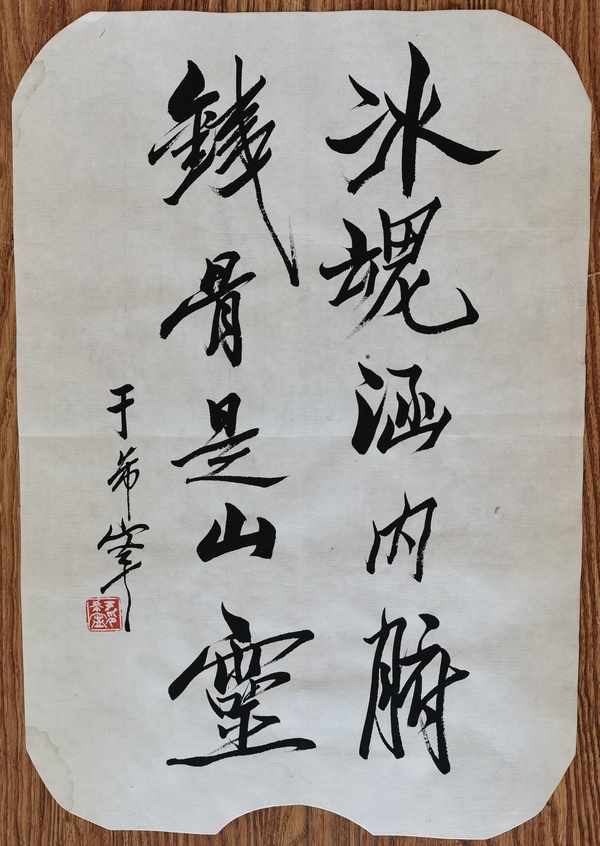 冰魄涵内腑
鐵骨是山靈
于希寧